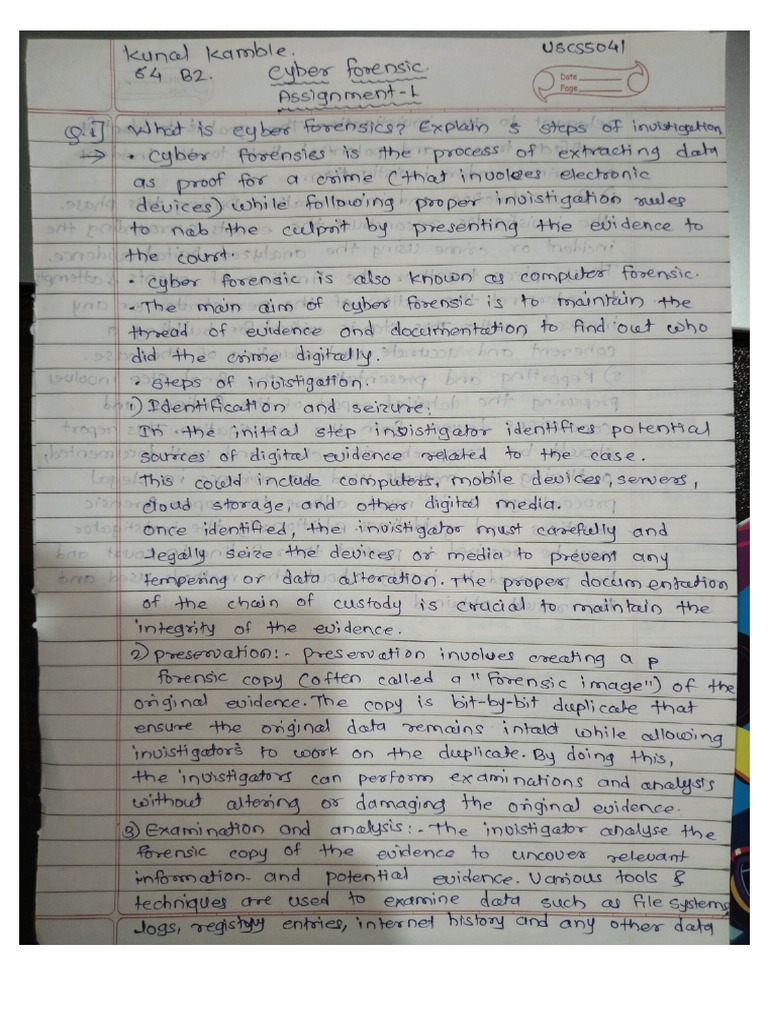 Kunal Kamble.
USCS5041
64 B2.
Cyber forensic.
Date
Page
Assignment-1
Q.1] What is cyber forensics? Explain 5 steps of invistigation
→ • Cyber forensies is the process of extracting data
as proof for a crime (that involves electronic
devices) while following proper invistigation rules
to nab the culprit by presenting the evidence to
the court.
• Cyber forensic is also known as computer forensic.
• The main aim of cyber forensic is to maintain the
thread of evidence and documentation to find out who
did the crime digitally.
• Steps of invistigation.
1) Identification and seizure.
In the initial step invistigator identifies potential
sources of digital evidence related to the case.
This could include computers, mobile devices, servers,
cloud storage, and other digital media.
Once identified, the invistigator must carefully and
legally seize the devices or media to prevent any
tempering or data alteration. The proper documentation
of the chain of custody is crucial to maintain the
integrity of the evidence.
2) Preservation:- Preservation involves creating a p
forensic copy (often called a "forensic image") of the
original evidence. The copy is bit-by-bit duplicate that
ensure the original data remains intald while allowing
invistigators to work on the duplicate. By doing this,
the invistigators can perform examinations and analysis
without altering or damaging the original evidence.
3) Examination and analysis:- The invistigator analyse the
forensic copy of the evidence to uncover relevant
information and potential evidence. Various tools &
techniques are used to examine data such as file systems,
logs, registyy entries, internet history and any other data